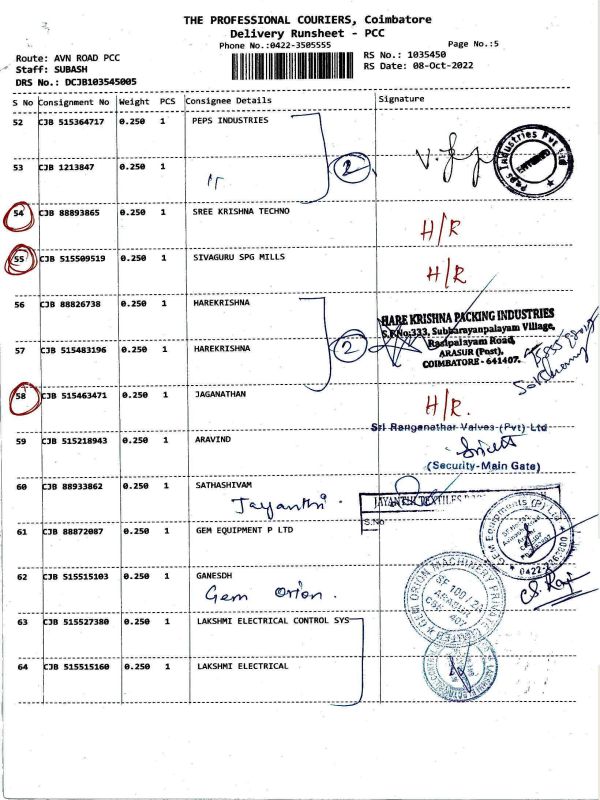 THE PROFESSIONAL COURIERS, Coimbatore
Delivery Runsheet - PCC
Phone No.:0422-3505555
Page No.:5
Route: AVN ROAD PCC
RS No.: 1035450
Staff: SUBASH
RS Date: 08-Oct-2022
DRS No.: DCJB103545005
S No Consignment No Weight PCS Consignee Details Signature
52 CJB 515364717 0.250 1 PEPS INDUSTRIES
Peps Industries Pvt Ltd
2
53 CJB 1213847 0.250 1
54 CJB 88893865 0.250 1 SREE KRISHNA TECHNO
H/R
55 CJB 515509519 0.250 1 SIVAGURU SPG MILLS
H/R
56 CJB 88826738 0.250 1 HAREKRISHNA
HARE KRISHNA PACKING INDUSTRIES
S.F.No:333, Subbarayanpalayam Village,
2
57 CJB 515483196 0.250 1 HAREKRISHNA
Rasipalayam Road,
ARASUR (Post),
COIMBATORE - 641407.
58 CJB 515463471 0.250 1 JAGANATHAN
H/R.
Sri Ranganathar Valves (Pvt) Ltd
59 CJB 515218943 0.250 1 ARAVIND
(Security-Main Gate)
60 CJB 88933862 0.250 1 SATHASHIVAM
Jayanthi.
JAYANTHI TEXTILES
S.No
61 CJB 88872087 0.250 1 GEM EQUIPMENT P LTD
GEM Equipments (P) Ltd
62 CJB 515515103 0.250 1 GANESDH
Gem Orion.
GEM ORION MACHINERY PRIVATE LIMITED
63 CJB 515527380 0.250 1 LAKSHMI ELECTRICAL CONTROL SYS
64 CJB 515515160 0.250 1 LAKSHMI ELECTRICAL